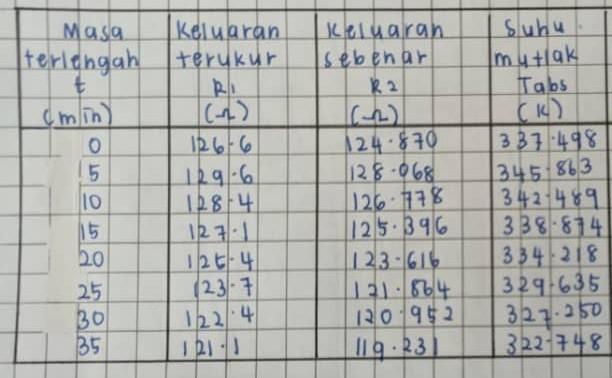 Masa terlengah t (min) | Keluaran terukur R1 (Ω) | Keluaran sebenar R2 (Ω) | Suhu mutlak Tabs (K)
0 | 126.6 | 124.870 | 337.498
5 | 129.6 | 128.068 | 345.863
10 | 128.4 | 126.778 | 342.489
15 | 127.1 | 125.396 | 338.874
20 | 125.4 | 123.616 | 334.218
25 | 123.7 | 121.864 | 329.635
30 | 122.4 | 120.952 | 327.250
35 | 121.1 | 119.231 | 322.748